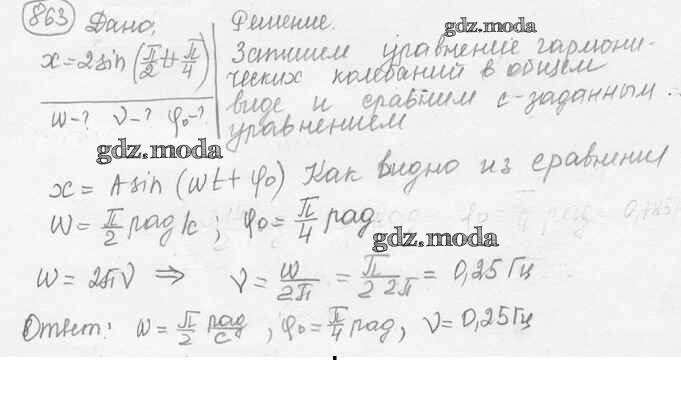 863 Дано: Решение. gdz.moda
x = 2 sin (π/2 t + π/4) Запишем уравнение гармони-
ческих колебаний в общем
виде и сравним с заданным
ω-? ν-? φ₀-? уравнением
gdz.moda
x = A sin (ωt + φ₀) Как видно из сравнения
ω = π/2 рад/с; φ₀ = π/4 рад
gdz.moda
ω = 2πν ⇒ ν = ω/2π = π/2·2π = 0,25 Гц
Ответ: ω = π/2 рад/с, φ₀ = π/4 рад, ν = 0,25 Гц